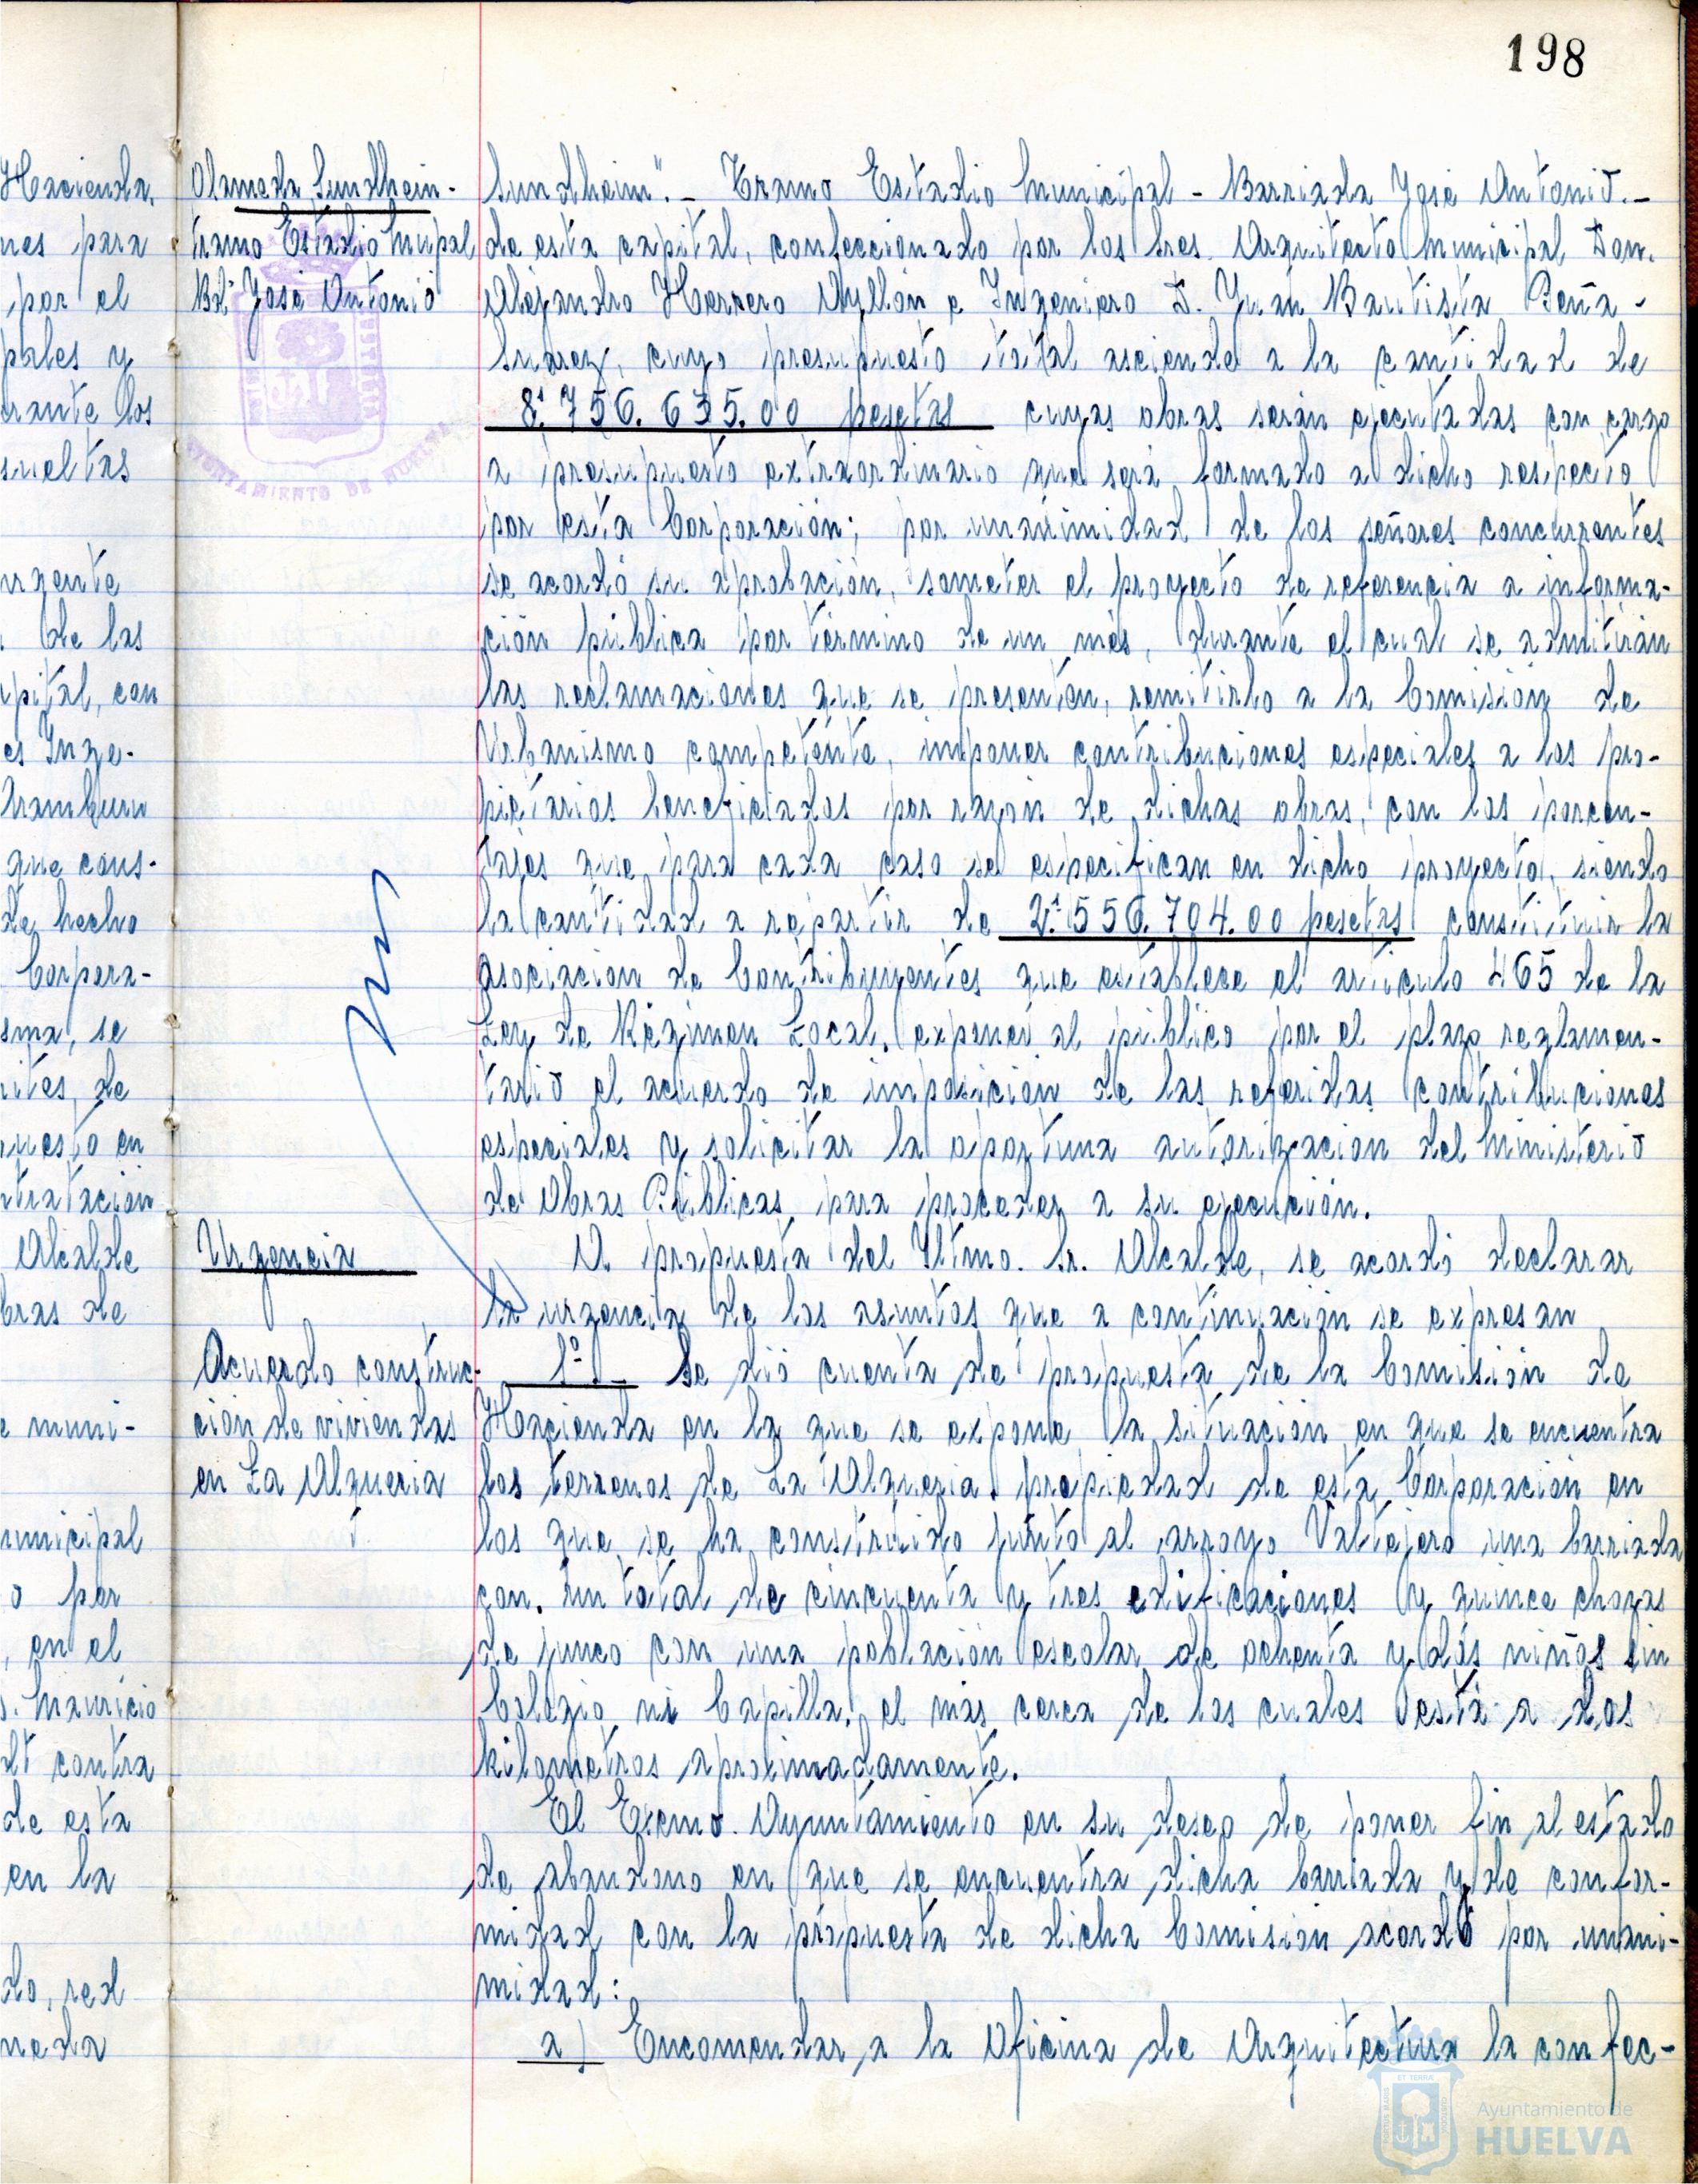 198
Hacienda,
nes para
por el
pales y
erante los
sueltas
urgente
de las
pital, con
es Inge-
Aramburu
que cons-
de hecho
Corpora-
sma, se
de
uesto en
ntratación
Alcalde
bras de
e muni-
municipal
o por
, en el
D. Mauricio
contra
de esta
en la
do, red
neda
Alameda Sundhein-
tramo Estadio Mupal
Bda José Antonio
AYUNTAMIENTO DE HUELVA
Sundheim".- Tramo Estadio Municipal - Barriada José Antonio.-
de esta capital, confeccionado por los Sres. Arquitecto Municipal Don.
Alejandro Herrero Ayllón e Ingeniero D. Juan Bautista Peña-
Suarez, cuyo presupuesto total asciende a la cantidad de
8.756.635.00 pesetas cuyas obras serán ejecutadas con cargo
a presupuesto extraordinario que será formado a dicho respecto
por esta Corporación; por unanimidad de los señores concurrentes
se acordó su aprobación, someter el proyecto de referencia a informa-
ción pública por término de un mes, durante el cual se admitirán
las reclamaciones que se presenten, remitirlo a la Comisión de
Urbanismo competente, imponer contribuciones especiales a los pro-
pietarios beneficiados por razón de dichas obras, con los porcen-
tajes que para cada caso se especifican en dicho proyecto, siendo
la cantidad a repartir de 2.556.704.00 pesetas constituir la
asociacion de Contribuyentes que establece el articulo 465 de la
Ley de Régimen Local, exponer al público por el plazo reglamen-
tario el acuerdo de imposición de las referidas contribuciones
especiales y solicitar la oportuna autorización del Ministerio
de Obras Públicas para proceder a su ejecución.
Urgencia
A propuesta del Iltmo. Sr. Alcalde, se acordó declarar
la urgencia de los asuntos que a continuación se expresan
Acuerdo construc-
ción de viviendas
en La Alqueria
1º).- Se dió cuenta de propuesta de la Comisión de
Hacienda en la que se expone la situación en que se encuentra
los terrenos de La Alqueria propiedad de esta Corporación en
los que se ha construido junto al arroyo Valtejero una barriada
con un total de cincuenta y tres edificaciones y quince chozas
de junco con una población escolar de ochenta y dos niños sin
Colegio ni Capilla, el más cerca de los cuales está a dos
kilometros aproximadamente.
El Excmo. Ayuntamiento en su deseo de poner fin al estado
de abandono en que se encuentra dicha barriada y de confor-
midad con la propuesta de dicha Comisión acordó por unani-
midad:
a) Encomendar a la Oficina de Arquitectura la confec-
Ayuntamiento de
HUELVA